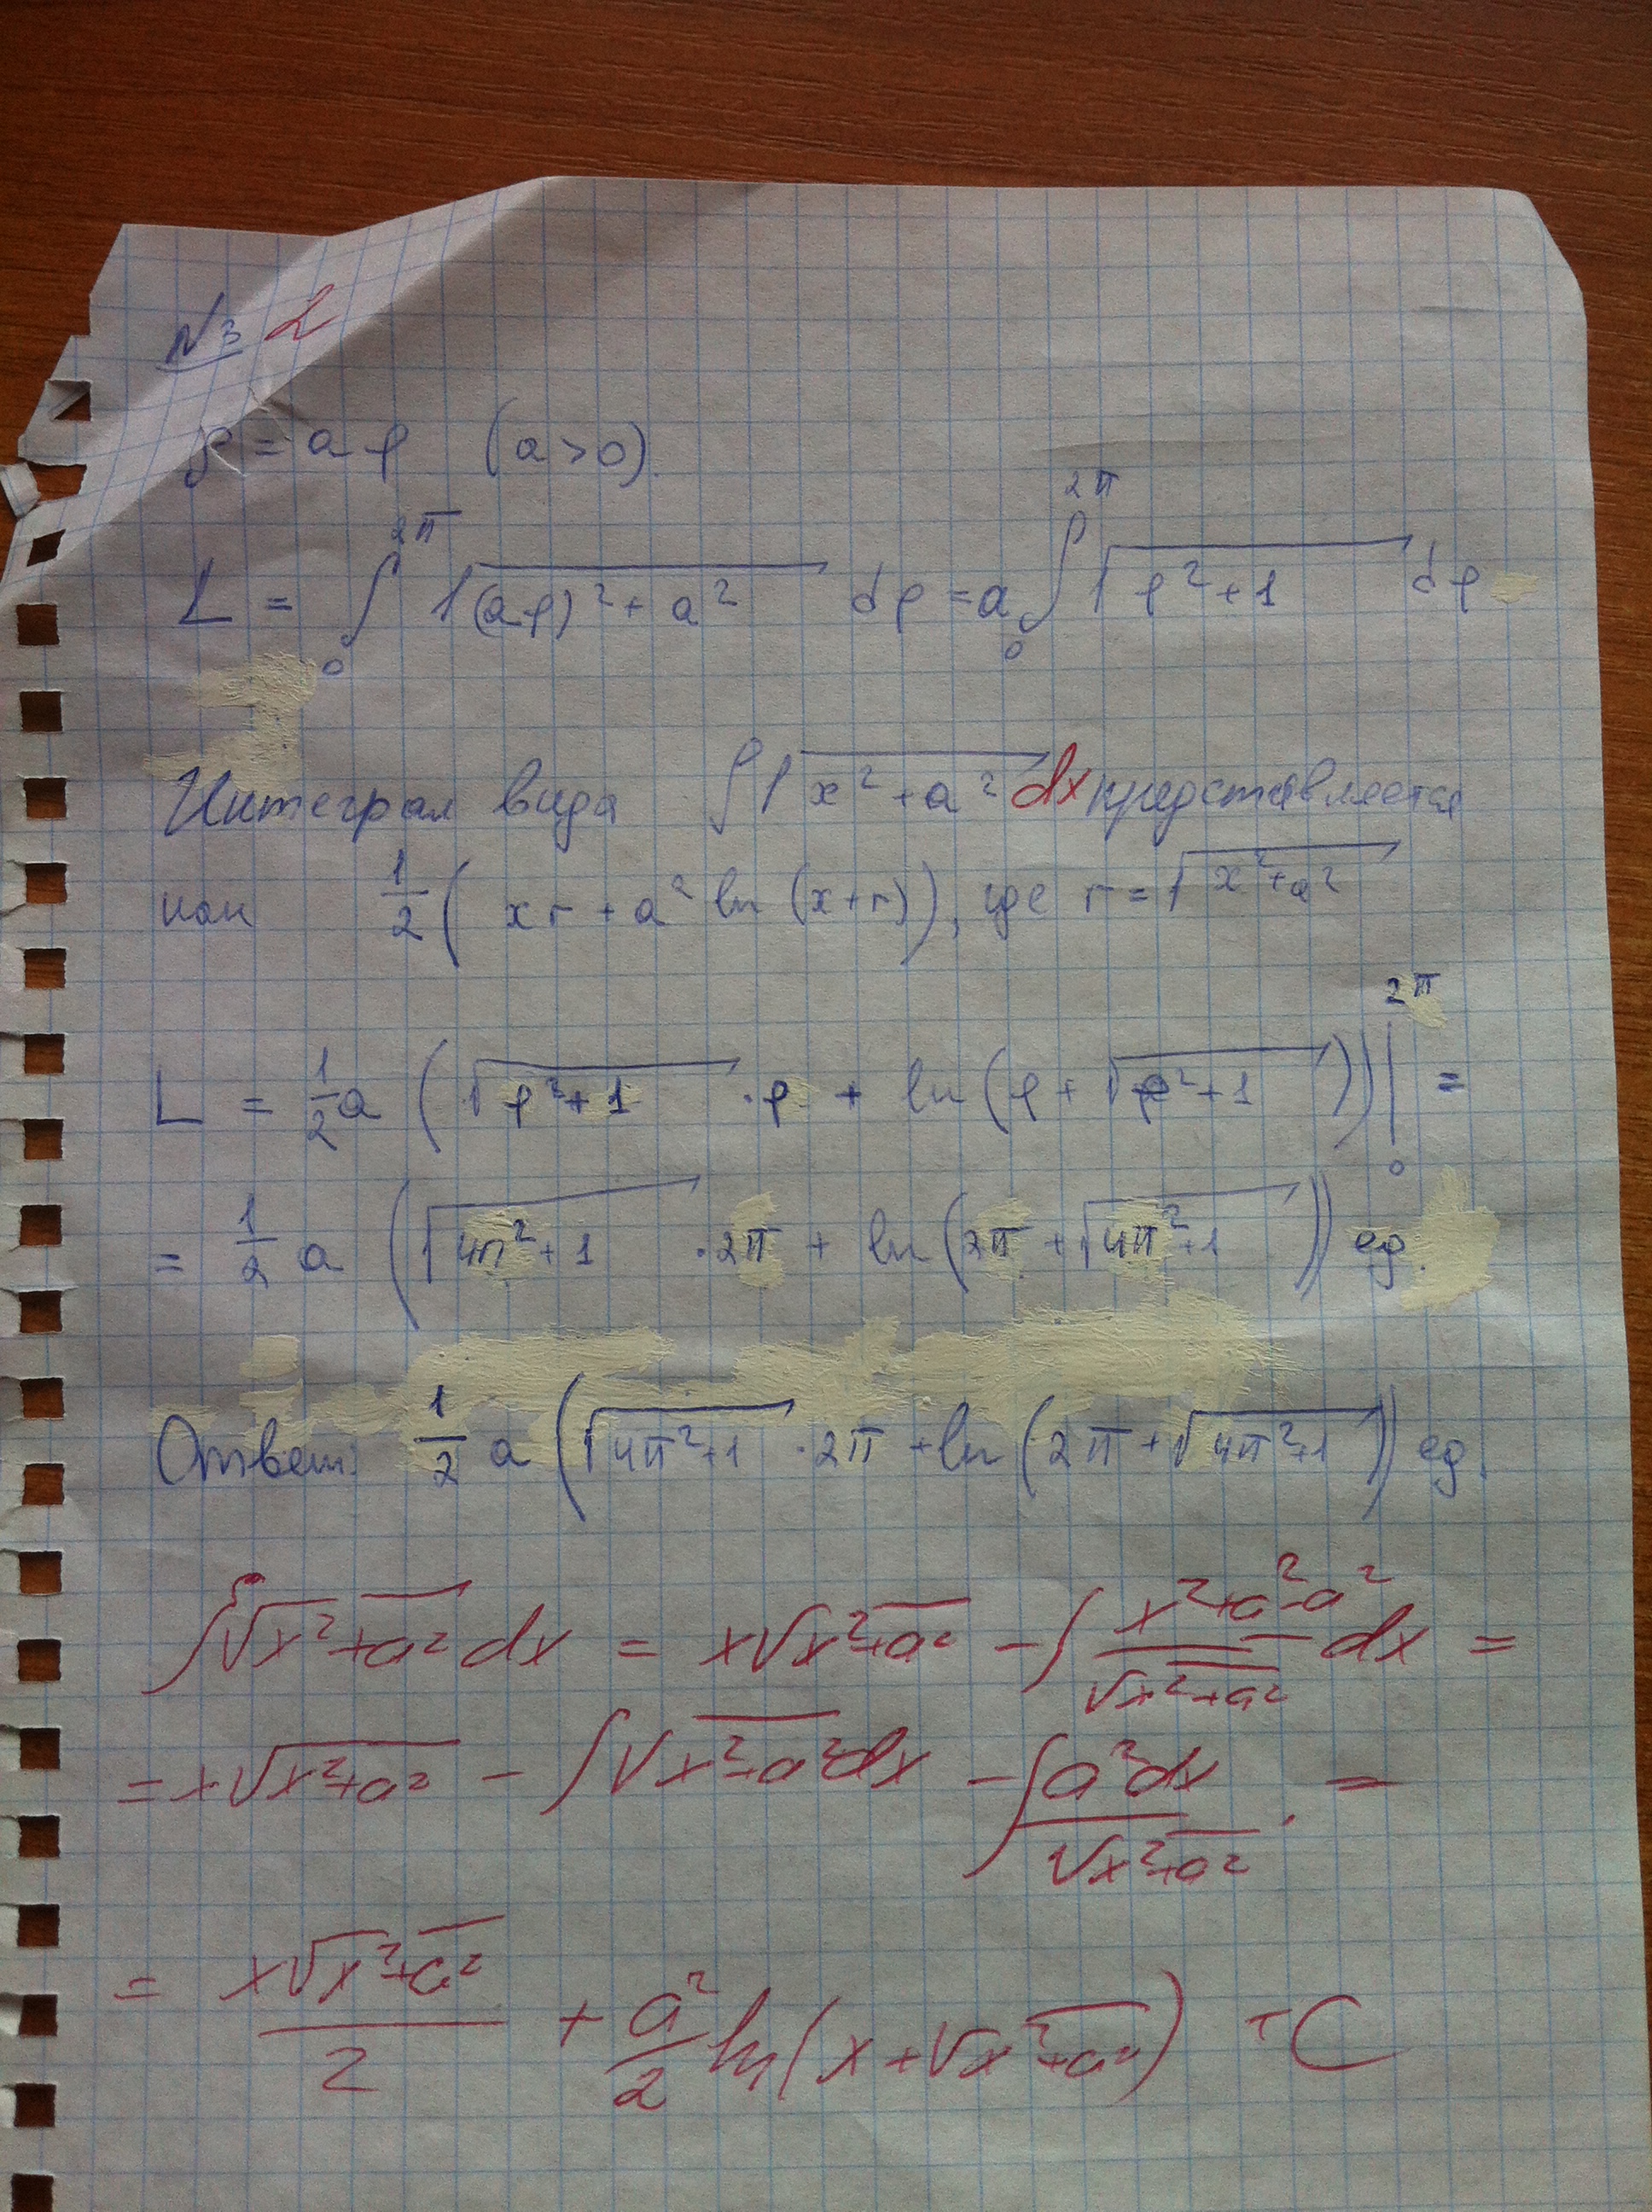 №3 2
ρ = aφ (a>0).
L = ∫₀^{2π} √((aφ)² + a²) dφ = a ∫₀^{2π} √(φ² + 1) dφ
Интеграл вида ∫√(x² + a²) dx представляется
как 1/2 (xr + a² ln (x+r)), где r = √(x² + a²)
L = 1/2 a (√(φ² + 1) · φ + ln (φ + √(φ² + 1)))|₀^{2π} =
= 1/2 a (√(4π² + 1) · 2π + ln (2π + √(4π² + 1))) ед.
Ответ: 1/2 a (√(4π² + 1) · 2π + ln (2π + √(4π² + 1))) ед.
∫√(x² + a²) dx = x√(x² + a²) − ∫ (x² + a² − a²)/√(x² + a²) dx =
= x√(x² + a²) − ∫√(x² + a²) dx − ∫ a² dx/√(x² + a²) =
= x√(x² + a²)/2 + a²/2 ln(x + √(x² + a²)) + C